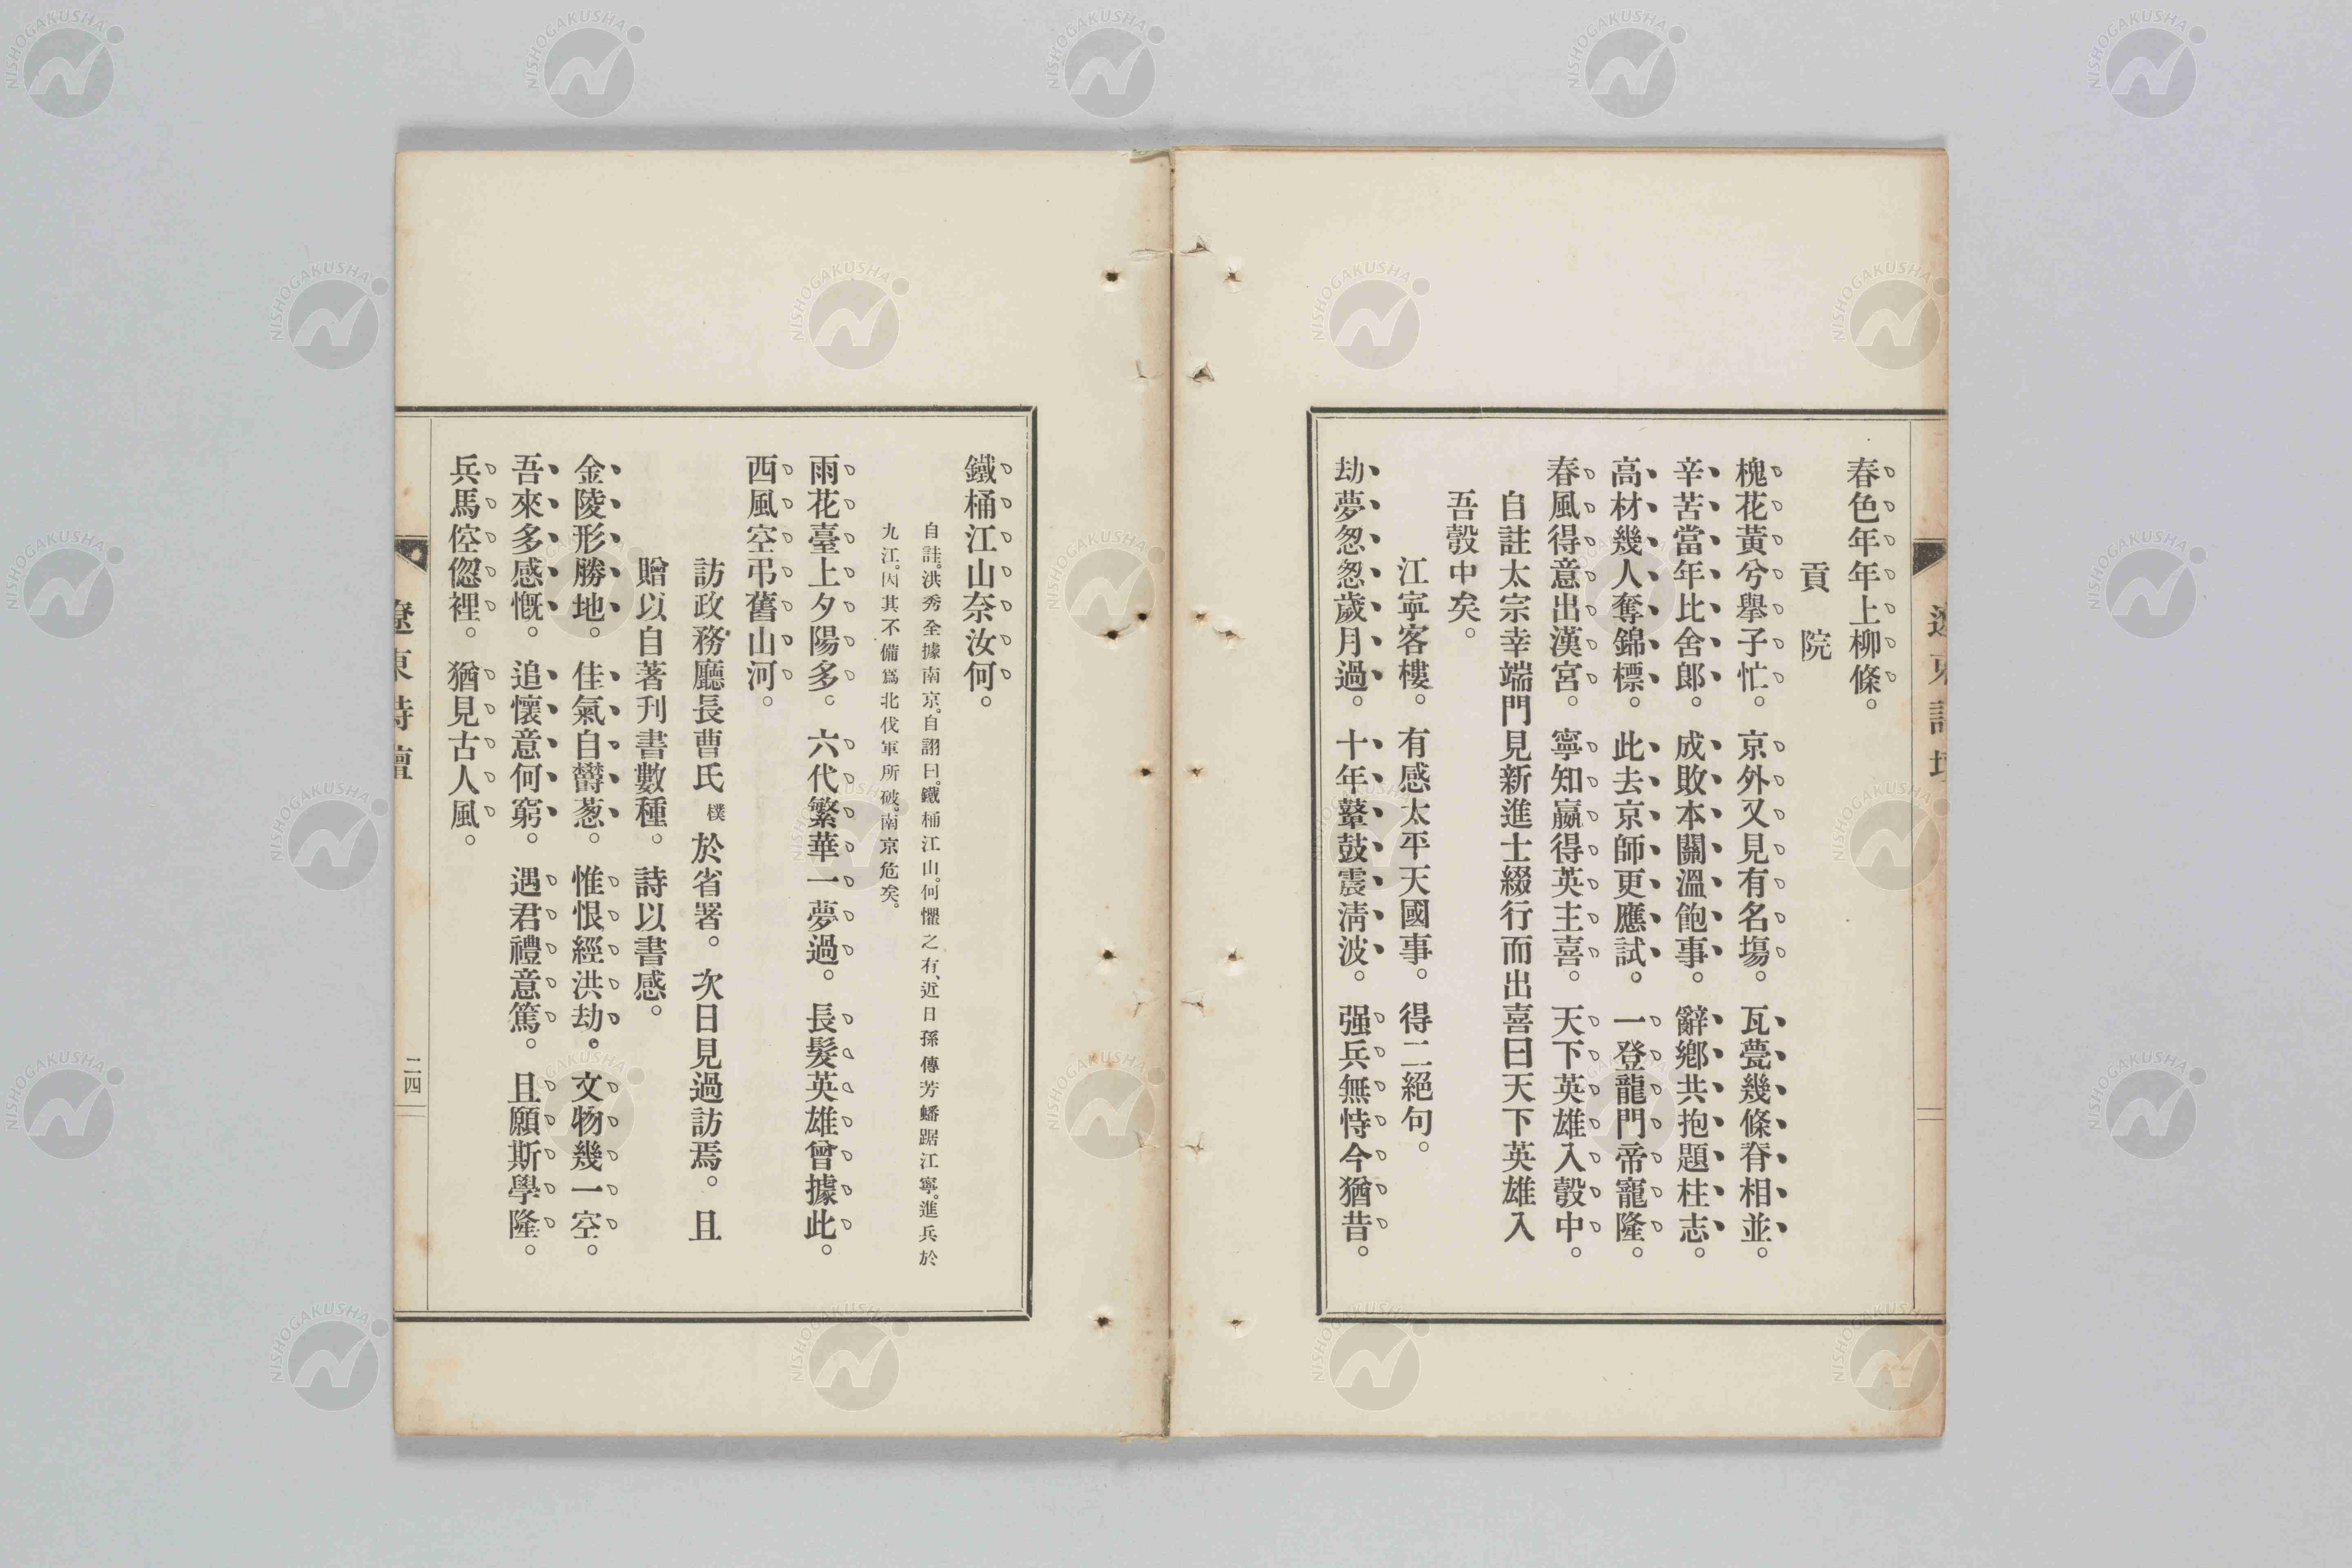 春色年年上柳條。
貢院
槐花黃兮擧子忙。京外又見有名塲。瓦甍幾條脊相並。
辛苦當年比舍郞。成敗本關溫飽事。辭鄕共抱題柱志。
高材幾人奪錦標。此去京師更應試。一登龍門帝寵隆。
春風得意出漢宮。寧知贏得英主喜。天下英雄入彀中。
自註太宗幸端門見新進士綴行而出喜曰天下英雄入
吾彀中矣。
江寧客樓。有感太平天國事。得二絕句。
劫夢怱怱歲月過。十年鼙鼓震淸波。强兵無恃今猶昔。
鐵桶江山奈汝何。
自註。洪秀全據南京。自詡曰。鐵桶江山。何懼之有、近日孫傳芳蟠踞江寧。進兵於
九江。因其不備爲北伐軍所破。南京危矣。
雨花臺上夕陽多。六代繁華一夢過。長髮英雄曾據此。
西風空弔舊山河。
訪政務廳長曹氏樸於省署。次日見過訪焉。且
贈以自著刊書數種。詩以書感。
金陵形勝地。佳氣自欝葱。惟恨經洪劫。文物幾一空。
吾來多感慨。追懷意何窮。遇君禮意篤。且願斯學隆。
兵馬倥偬裡。猶見古人風。
遼東詩壇
二四
NISHOGAKUSHA